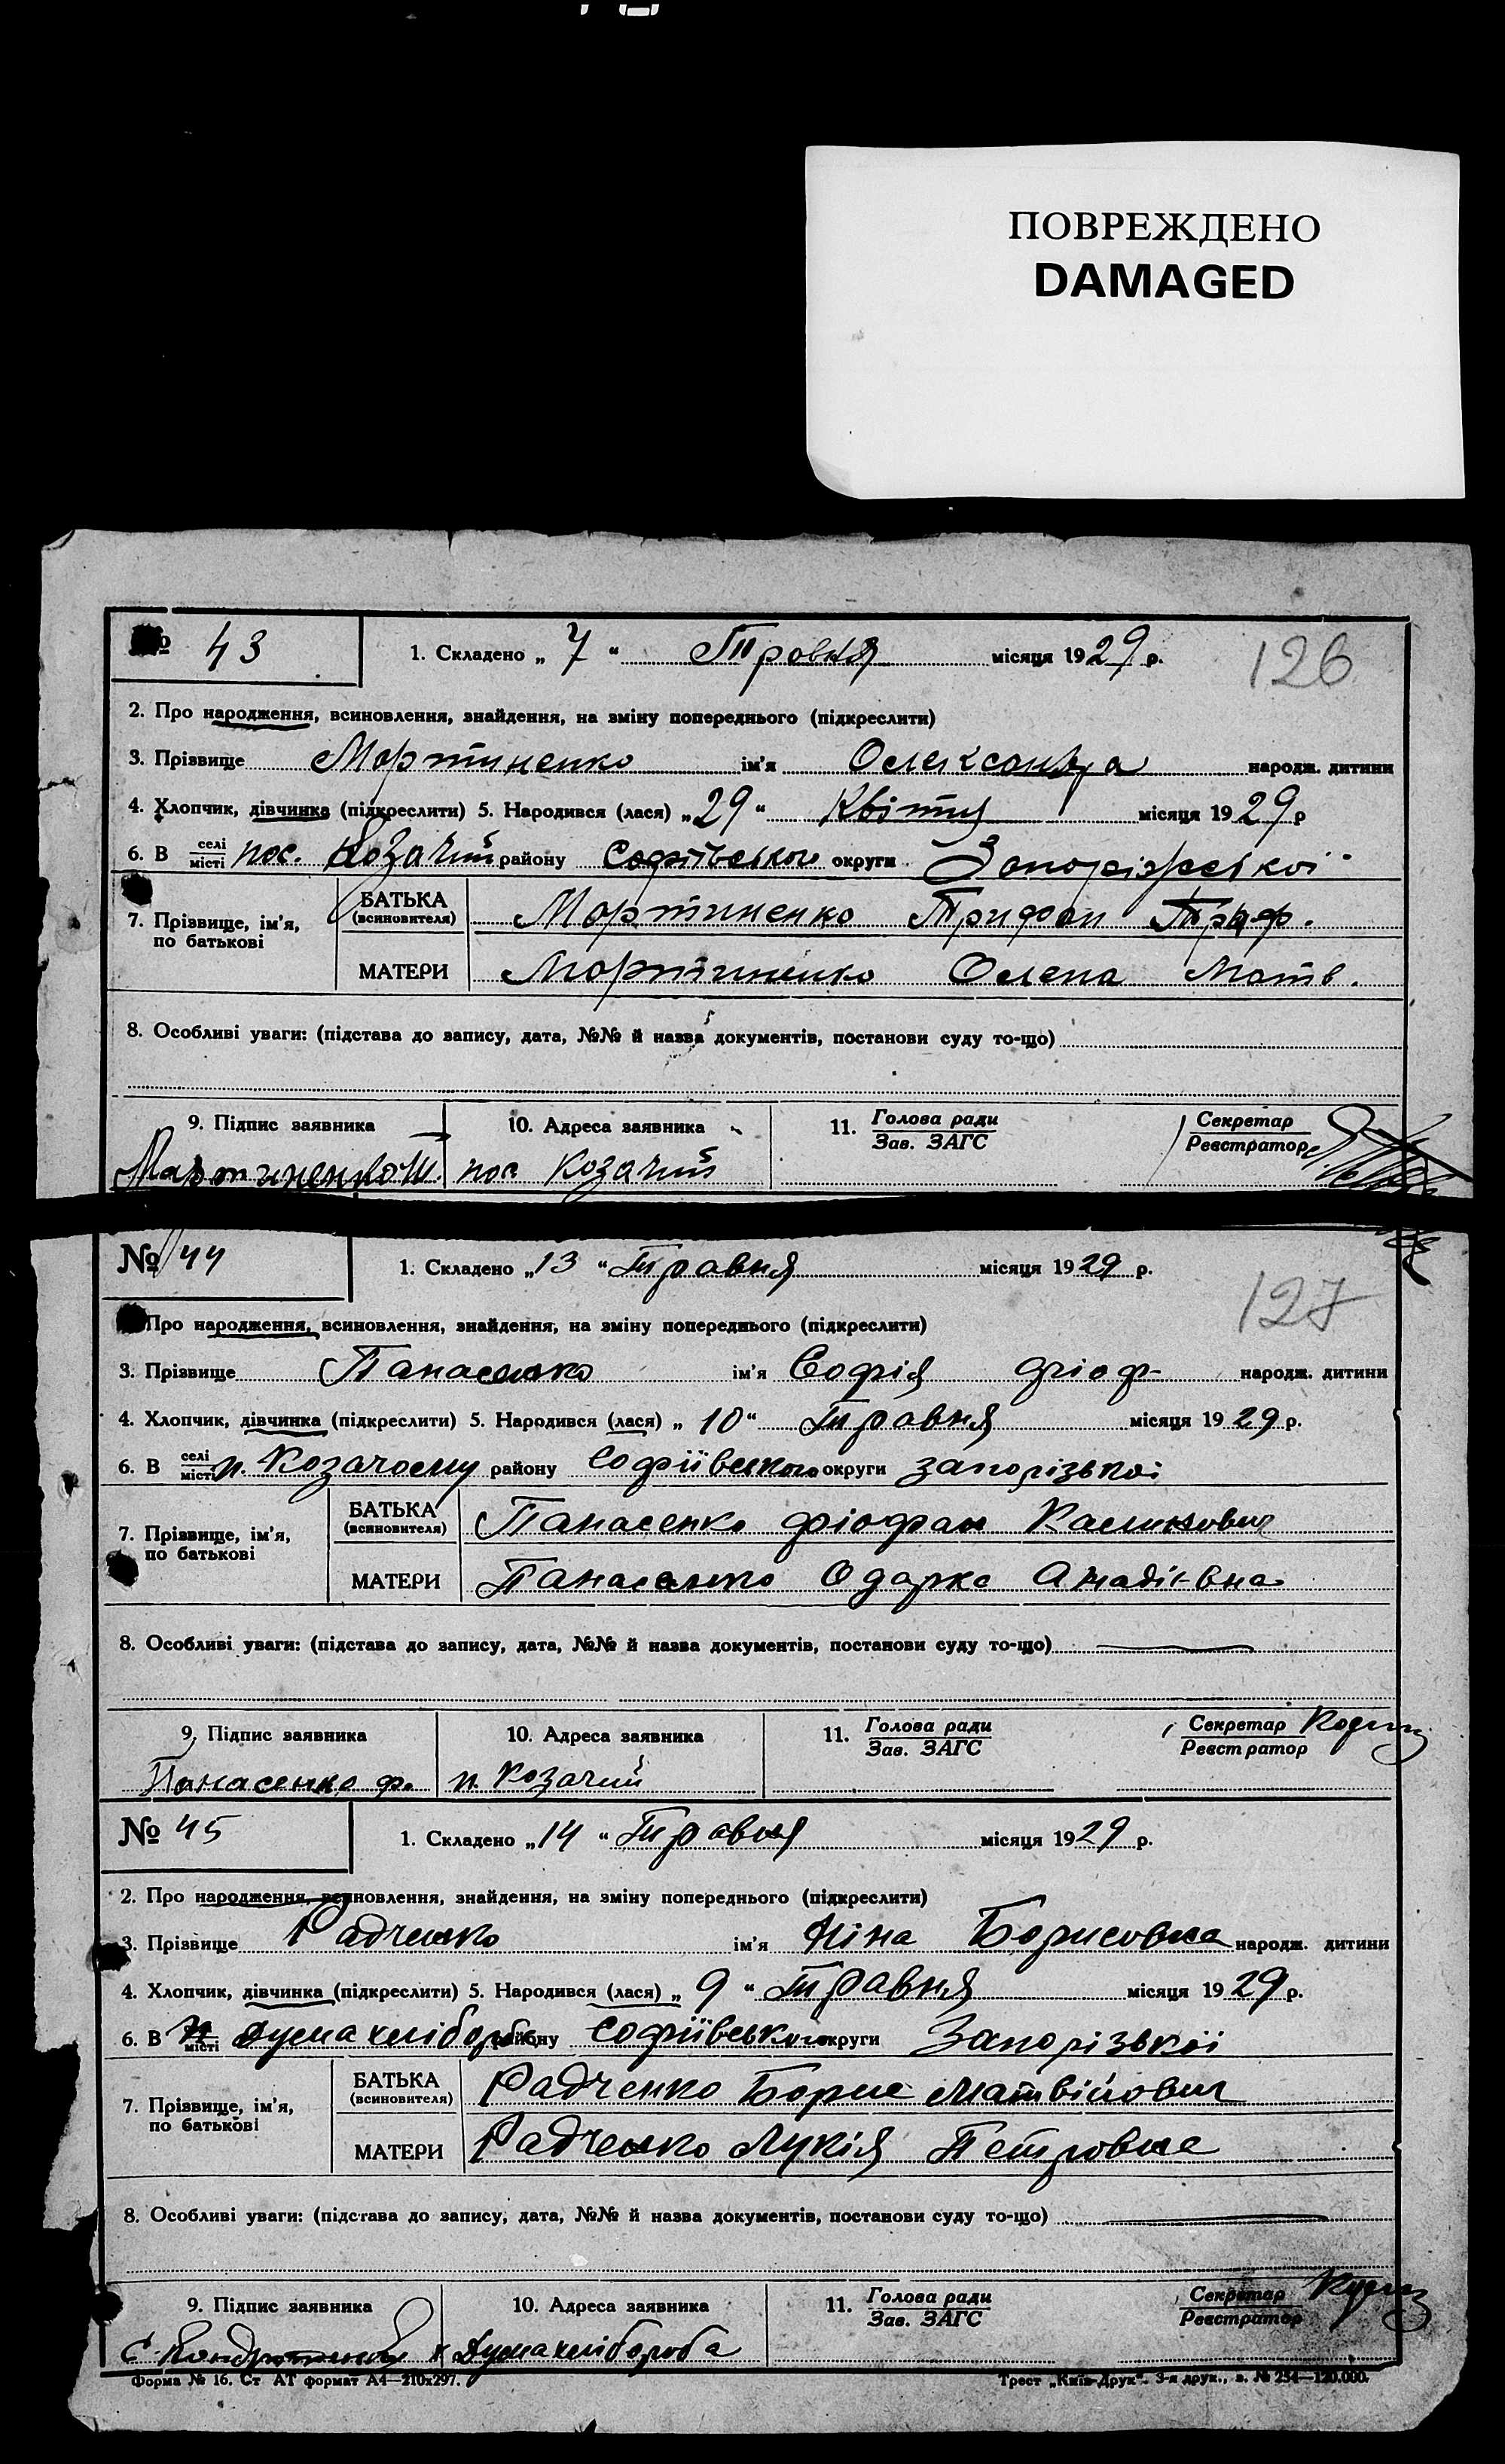 ПОВРЕЖДЕНО
DAMAGED
№ 43
1. Складено „ 7 “ Травня місяця 1929 р.
126
2. Про народження, всиновлення, знайдення, на зміну попереднього (підкреслити)
3. Прізвище Мартиненко ім'я Олександра народж. дитини
4. Хлопчик, дівчинка (підкреслити) 5. Народився (лася) „ 29 “ Квітня місяця 1929 р
6. В селі місті пос. Козачий району Софіївського округи Запоріжської
7. Прізвище, ім'я, по батькові
БАТЬКА (всиновителя) Мартиненко Трифон Триф.
МАТЕРИ Мартиненко Олена Матв.
8. Особливі уваги: (підстава до запису, дата, №№ й назва документів, постанови суду то-що)
9. Підпис заявника 10. Адреса заявника 11. Голова ради Зав. ЗАГС Секретар Реєстратор
Мартиненко пос Козачий
№ 44
1. Складено „ 13 “ Травня місяця 1929 р.
127
Про народження, всиновлення, знайдення, на зміну попереднього (підкреслити)
3. Прізвище Панасенко ім'я Софія фіоф- народж. дитини
4. Хлопчик, дівчинка (підкреслити) 5. Народився (лася) „ 10 “ Травня місяця 1929 р.
6. В селі місті п. Козачому району Софіївського округи Запорізької
7. Прізвище, ім'я, по батькові
БАТЬКА (всиновителя) Панасенко фіофан Калинович
МАТЕРИ Панасенко Одарка
8. Особливі уваги: (підстава до запису, дата, №№ й назва документів, постанови суду то-що)
9. Підпис заявника 10. Адреса заявника 11. Голова ради Зав. ЗАГС Секретар Реєстратор
Панасенко ф. п. Козачий
№ 45
1. Складено „ 14 “ Травня місяця 1929 р.
2. Про народження, всиновлення, знайдення, на зміну попереднього (підкреслити)
3. Прізвище Радченко ім'я Ніна Борисовна народж. дитини
4. Хлопчик, дівчинка (підкреслити) 5. Народився (лася) „ 9 “ Травня місяця 1929 р.
6. В місті п Дума хлібороба району Софіївського округи Запорізької
7. Прізвище, ім'я, по батькові
БАТЬКА (всиновителя) Радченко Борис Матвійович
МАТЕРИ Радченко Лукія Петровна
8. Особливі уваги: (підстава до запису, дата, №№ й назва документів, постанови суду то-що)
9. Підпис заявника 10. Адреса заявника 11. Голова ради Зав. ЗАГС Секретар Реєстратор
Дума хлібороба
Форма № 16. Ст АТ формат А4—210х297. Трест „Київ-Друк“. 3-я друк., з. № 234—120.000.